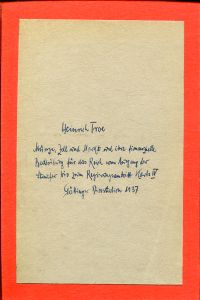 Heinrich Troe
Münze, Zoll und Markt und ihre finanzielle
Bedeutung für das Reich vom Ausgang der
Staufer bis zum Regierungsantritt Karls IV
Göttinger Dissertation 1937